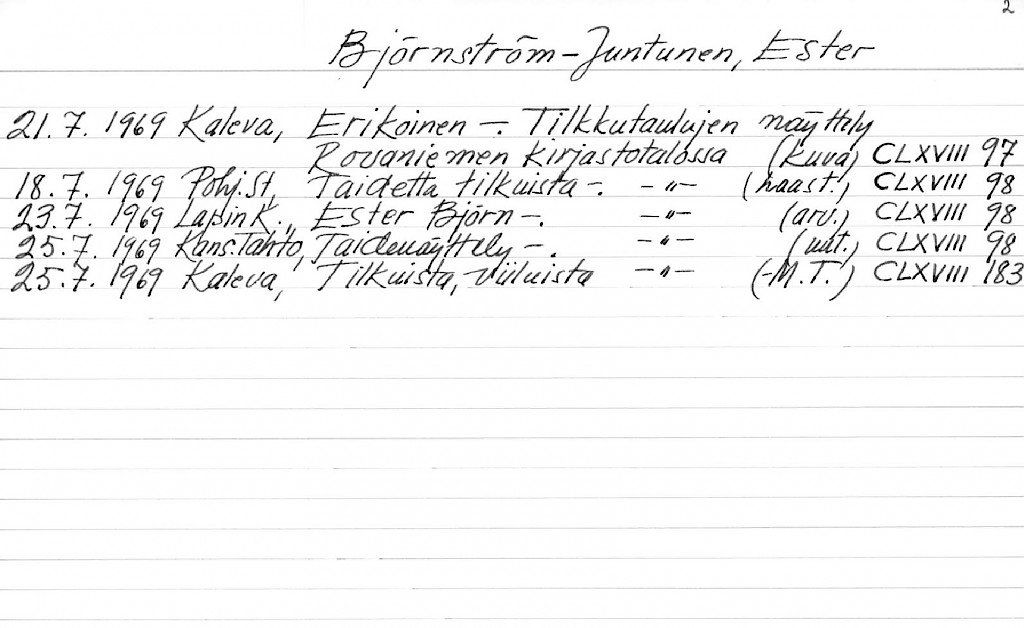 2
Björnström-Juntunen, Ester
21.7. 1969 Kaleva, Erikoinen -. Tilkkutaulujen näyttely
Rovaniemen kirjastotalossa (kuva) CLXVIII 97
18.7. 1969 Pohj.St, Taidetta tilkuista -. -"- (haast.) CLXVIII 98
23.7. 1969 Lapin K., Ester Björn -. -"- (arv.) CLXVIII 98
25.7. 1969 Kans.Tahto, Taidenäyttely -. -"- (uut.) CLXVIII 98
25.7. 1969 Kaleva, Tilkuista, viiluista -"- (-M.T.) CLXVIII 183